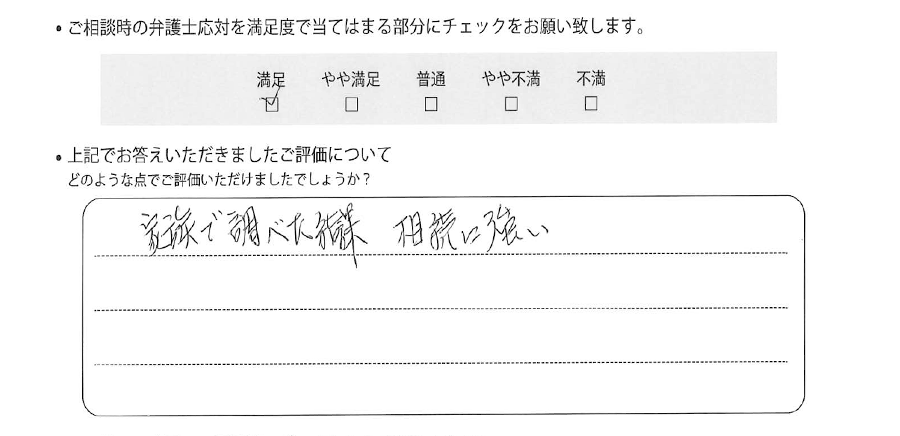 ・ご相談時の弁護士応対を満足度で当てはまる部分にチェックをお願い致します。
満足 やや満足 普通 やや不満 不満
☑ □ □ □ □
・上記でお答えいただきましたご評価について
どのような点でご評価いただけましたでしょうか？
家族で調べた結果 相続に強い